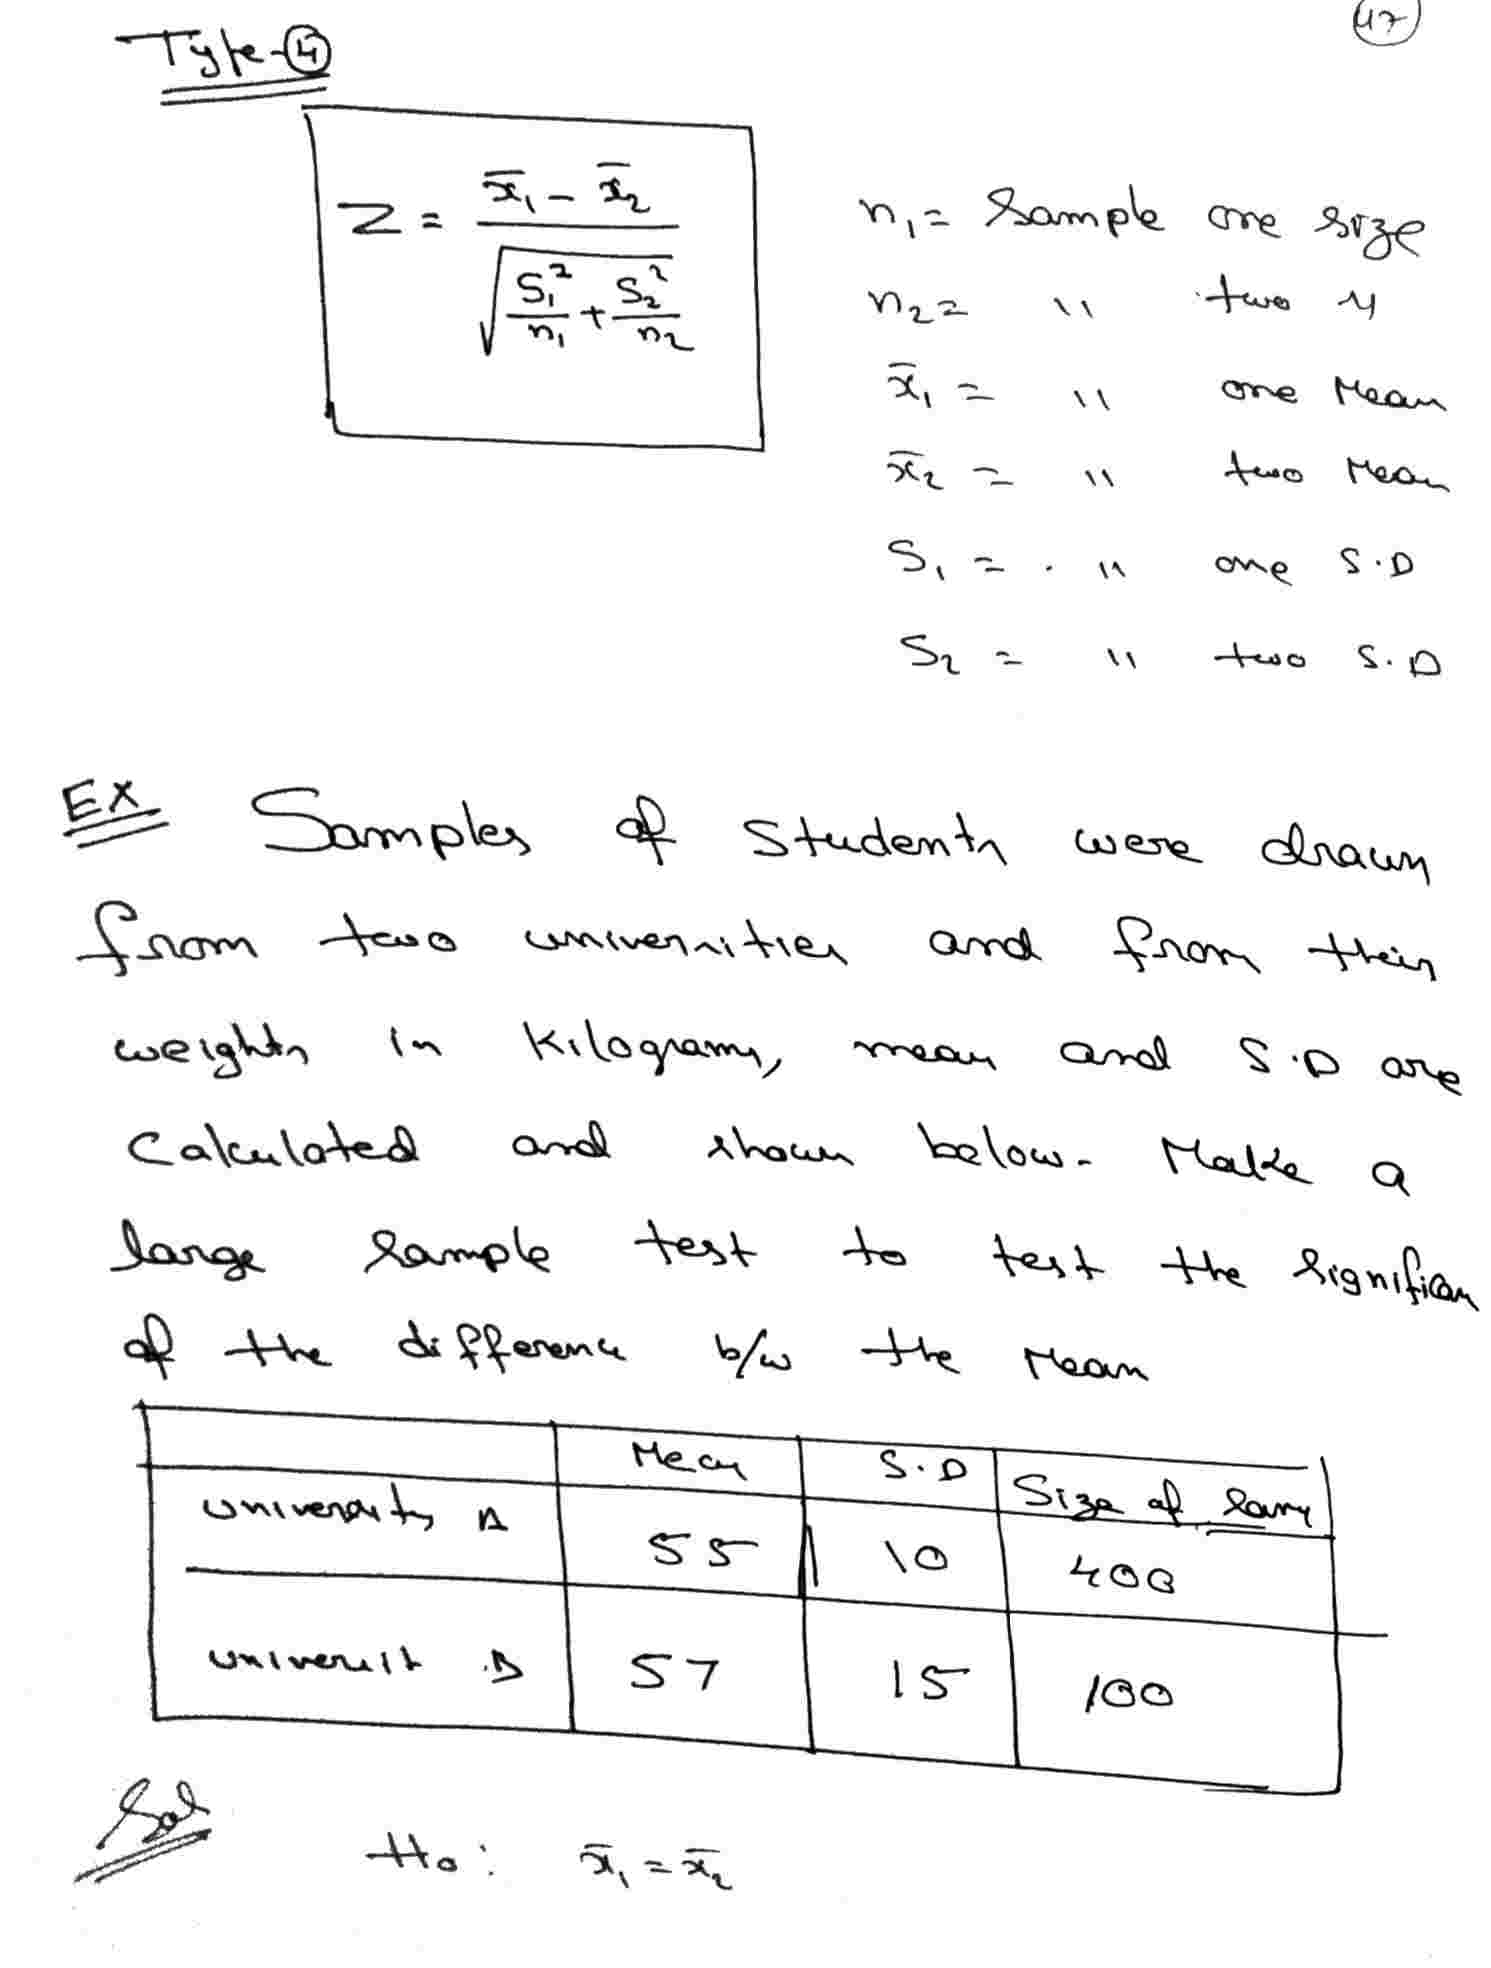 47
Type-4
Z = (x̄₁ - x̄₂) / √(S₁²/n₁ + S₂²/n₂)
n₁ = Sample one size
n₂ = " two "
x̄₁ = " one Mean
x̄₂ = " two Mean
S₁ = " one S.D
S₂ = " two S.D
EX Samples of Students were drawn
from two universities and from their
weights in Kilograms, mean and S.D are
Calculated and shown below. Make a
large sample test to test the significan
of the difference b/w the Mean
Mean S.D Size of Sam
University A 55 10 400
Universit B 57 15 100
Sol H₀: x̄₁ = x̄₂